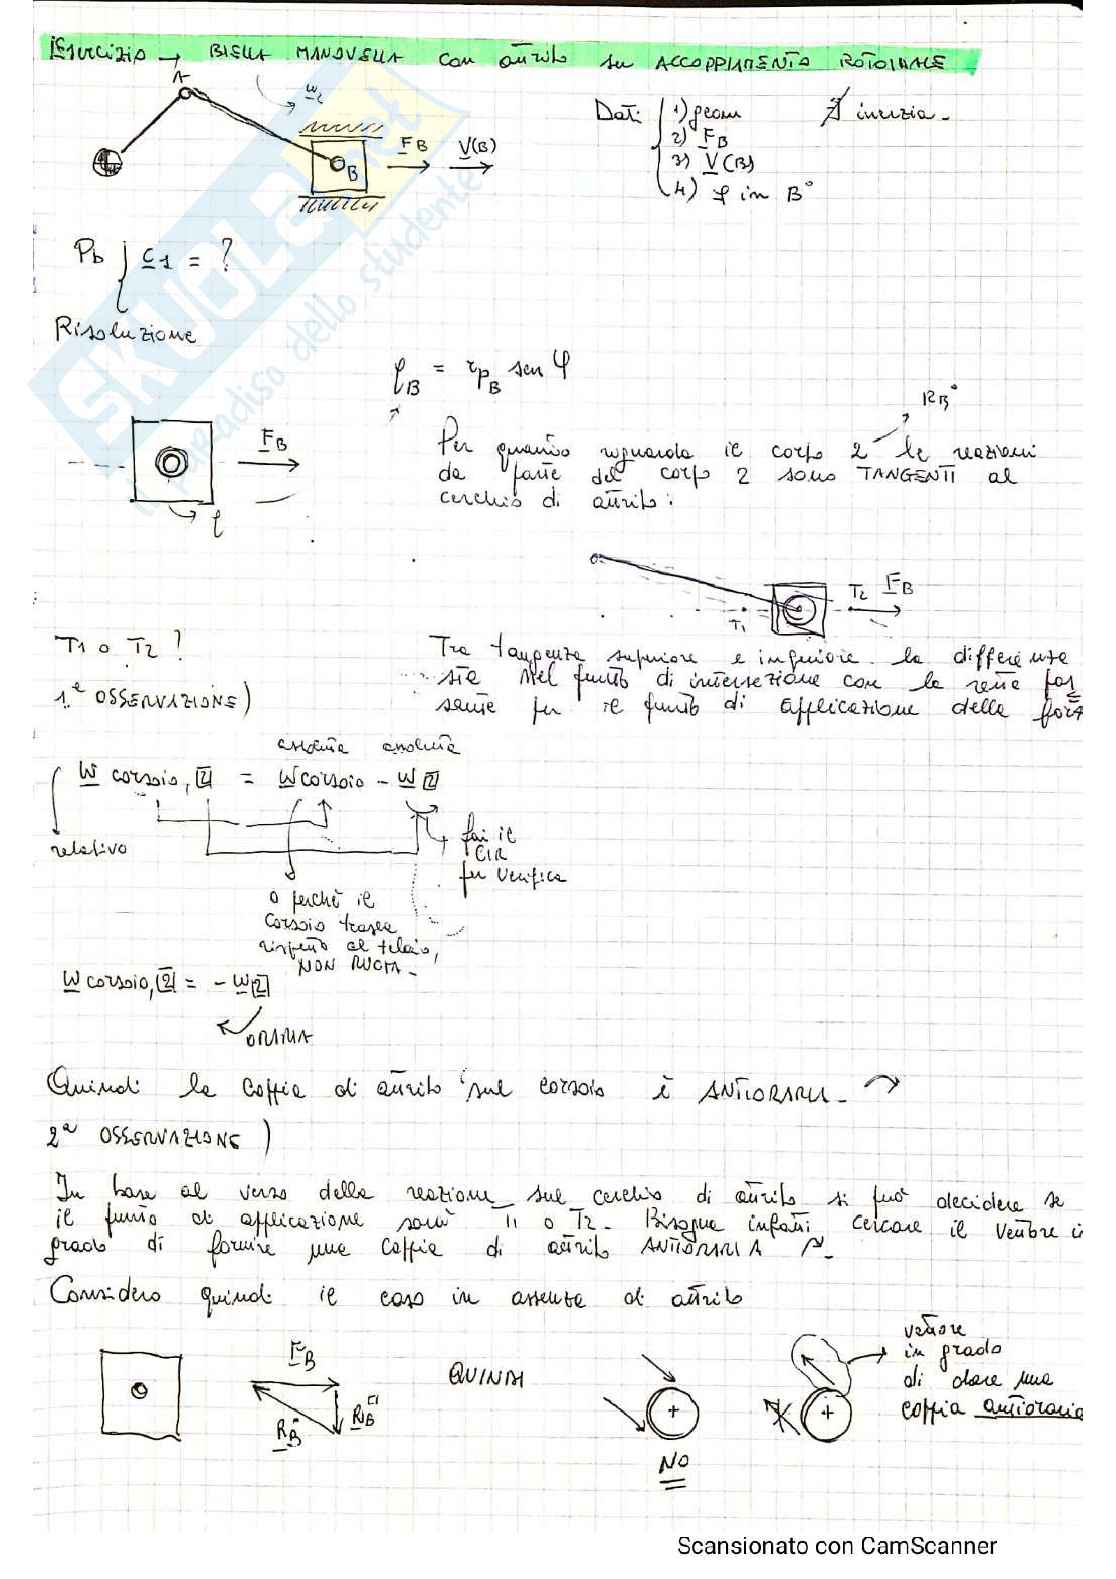 Esercizio → BIELLA MANOVELLA con attrito su ACCOPPIAMENTO ROTOIDALE
A
ω2
B
FB
V(B)
Dati
1) geom
2) FB
3) V(B)
4) φ in B°
∄ inerzia.
Pb { C1 = ?
Risoluzione
ρB = rpB sen φ
RB°
FB
ρ
Per quanto riguarda il corpo 2 le reazioni
da parte del corpo 2 sono TANGENTI al
cerchio di attrito:
T1
T2
FB
T1 o T2 ?
1ª OSSERVAZIONE)
Tra tangenza superiore e inferiore la differenza
sta nel punto di intersezione con la retta pas
sante per il punto di applicazione della forza
assoluta assoluta
ω corsoio, 2 = ω corsoio - ω 2
relativo
fai il
CIR
per verifica
0 perchè il
corsoio trasla
rispetto al telaio,
NON RUOTA.
ω corsoio, 2 = - ω 2
ORARIA
Quindi la coppia di attrito sul corsoio è ANTIORARIA.
2ª OSSERVAZIONE)
In base al verso della reazione sul cerchio di attrito si può decidere se
il punto di applicazione sarà T1 o T2. Bisogna infatti cercare il vettore in
grado di fornire una coppia di attrito ANTIORARIA.
Considero quindi il caso in assenza di attrito
FB
RB
RB°
QUINDI
NO
vettore
in grado
di dare una
coppia antioraria
SKUOLA.net
il paradiso dello studente
Scansionato con CamScanner